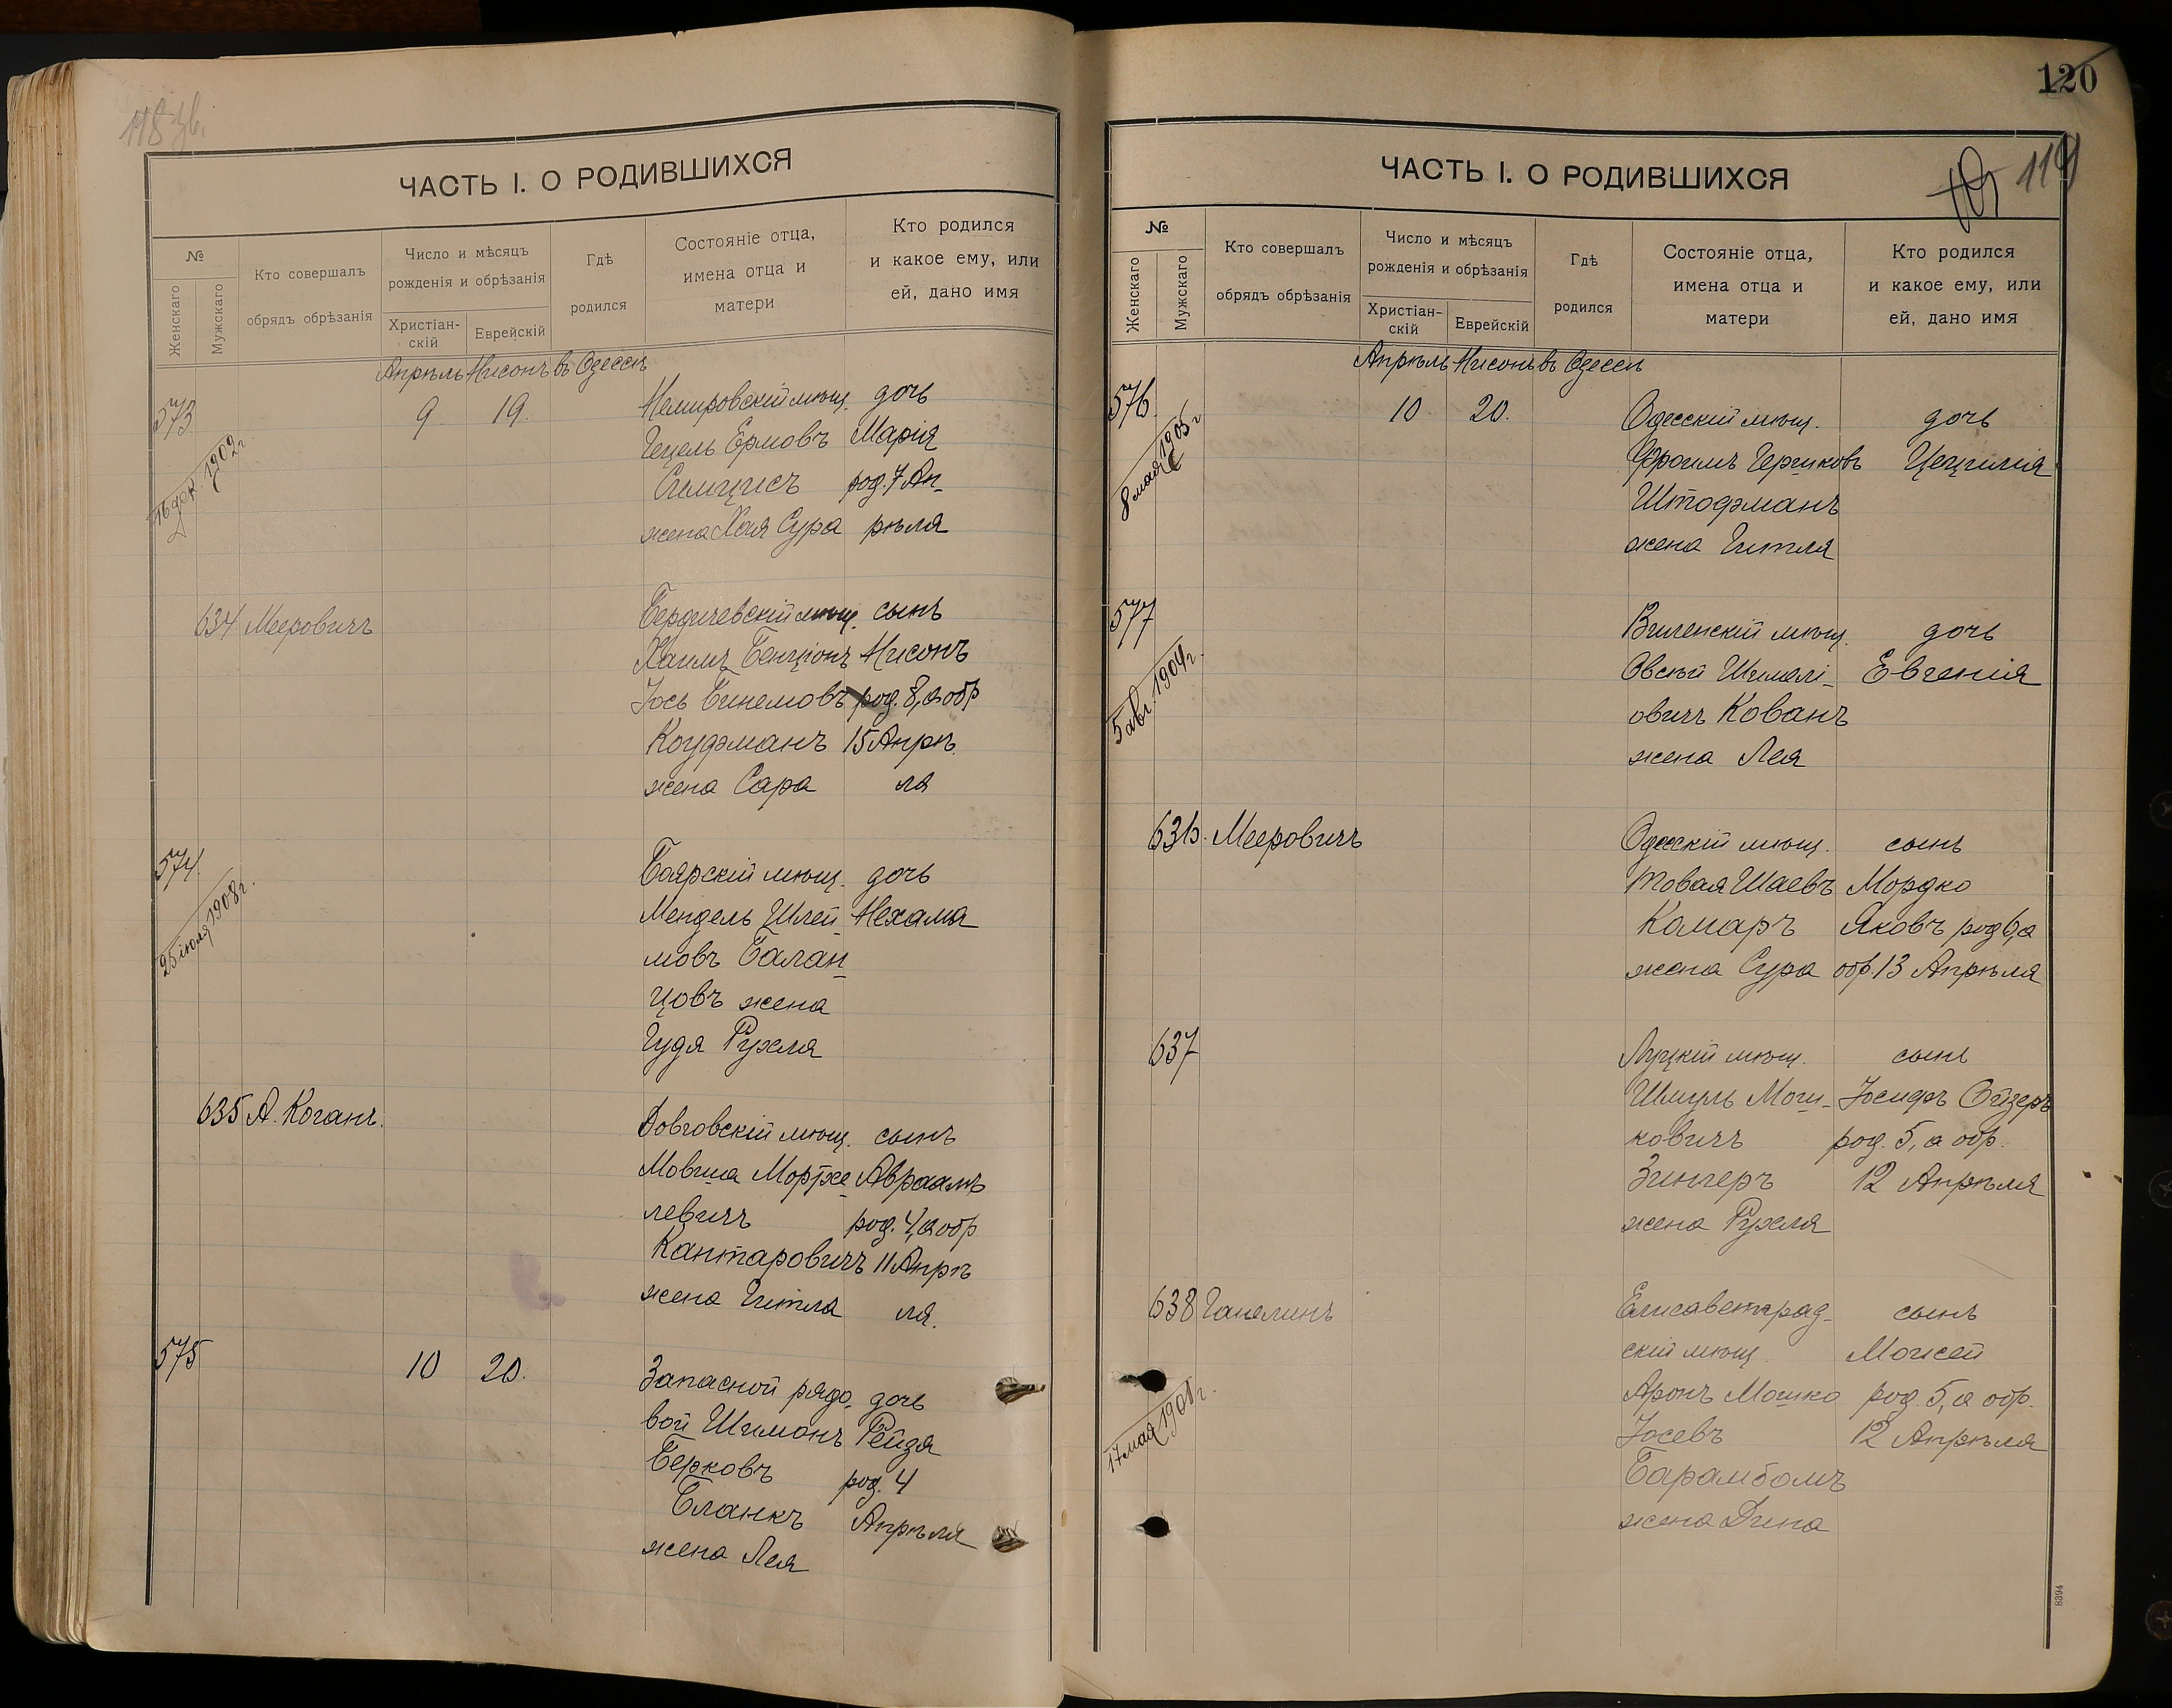 118 зв.
ЧАСТЬ I. О РОДИВШИХСЯ
№
Женскаго
Мужскаго
Кто совершалъ
обрядъ обрѣзанія
Число и мѣсяцъ
рожденія и обрѣзанія
Христіан-
скій
Еврейскій
Гдѣ
родился
Состояніе отца,
имена отца и
матери
Кто родился
и какое ему, или
ей, дано имя
Апрѣль Нисонъ въ Одессѣ
573 9 19. Немировскій мѣщ. дочь
16 дек. 1902 г.
Гецель Ермовъ Марія
род. 7 Ап-
жена Хая Сура рѣля
634 Мееровичъ Бердичевскій мѣщ. сынъ
Хаимъ Бенціонъ Нисонъ
Іось род. 8, а обр
15 Апрѣ
жена Сара ля
574. Боярскій мѣщ. дочь
25 іюля 1908 г.
Мендель Шлей- Нехама
мовъ Балан-
цовъ жена
Гудя Рухля
635 А. Коганъ. мѣщ. сынъ
Мовша Мортхе- Авраамъ
левичъ род. 4, а обр
Кантаровичъ 11 Апрѣ
жена Гитля ля.
575 10 20. Запасной рядо- дочь
вой Шимонъ Рейзя
Берковъ род. 4
Бланкъ Апрѣля
жена Лея
120
119
ЧАСТЬ I. О РОДИВШИХСЯ
№
Женскаго
Мужскаго
Кто совершалъ
обрядъ обрѣзанія
Число и мѣсяцъ
рожденія и обрѣзанія
Христіан-
скій
Еврейскій
Гдѣ
родился
Состояніе отца,
имена отца и
матери
Кто родился
и какое ему, или
ей, дано имя
Апрѣль Нисонъ въ Одессѣ
576 10 20. Одесскій мѣщ. дочь
8 мая 1905 г.
Фроимъ Гершковъ Цецилія
жена Гитля
577 Виленскій мѣщ. дочь
5 авг. 1904 г.
Овсѣй Шмелі- Евгенія
овичъ Кованъ
жена Лея
636. Мееровичъ Одесскій мѣщ. сынъ
Товая Шаевъ Мордко
Комаръ Яковъ род 6, а
жена Сура обр. 13 Апрѣля
637 Луцкій мѣщ. сынъ
Шмуль Мош- Іосифъ Ойзеръ
ковичъ род. 5, а обр.
Зингеръ 12 Апрѣля
жена Рухля
638 Ганелинъ Елисаветград- сынъ
скій мѣщ. Моисей
17 мая 1908 г.
Аронъ Мошко род. 5, а обр.
Іосевъ 12 Апрѣля
Барамбомъ
жена Дина
8394